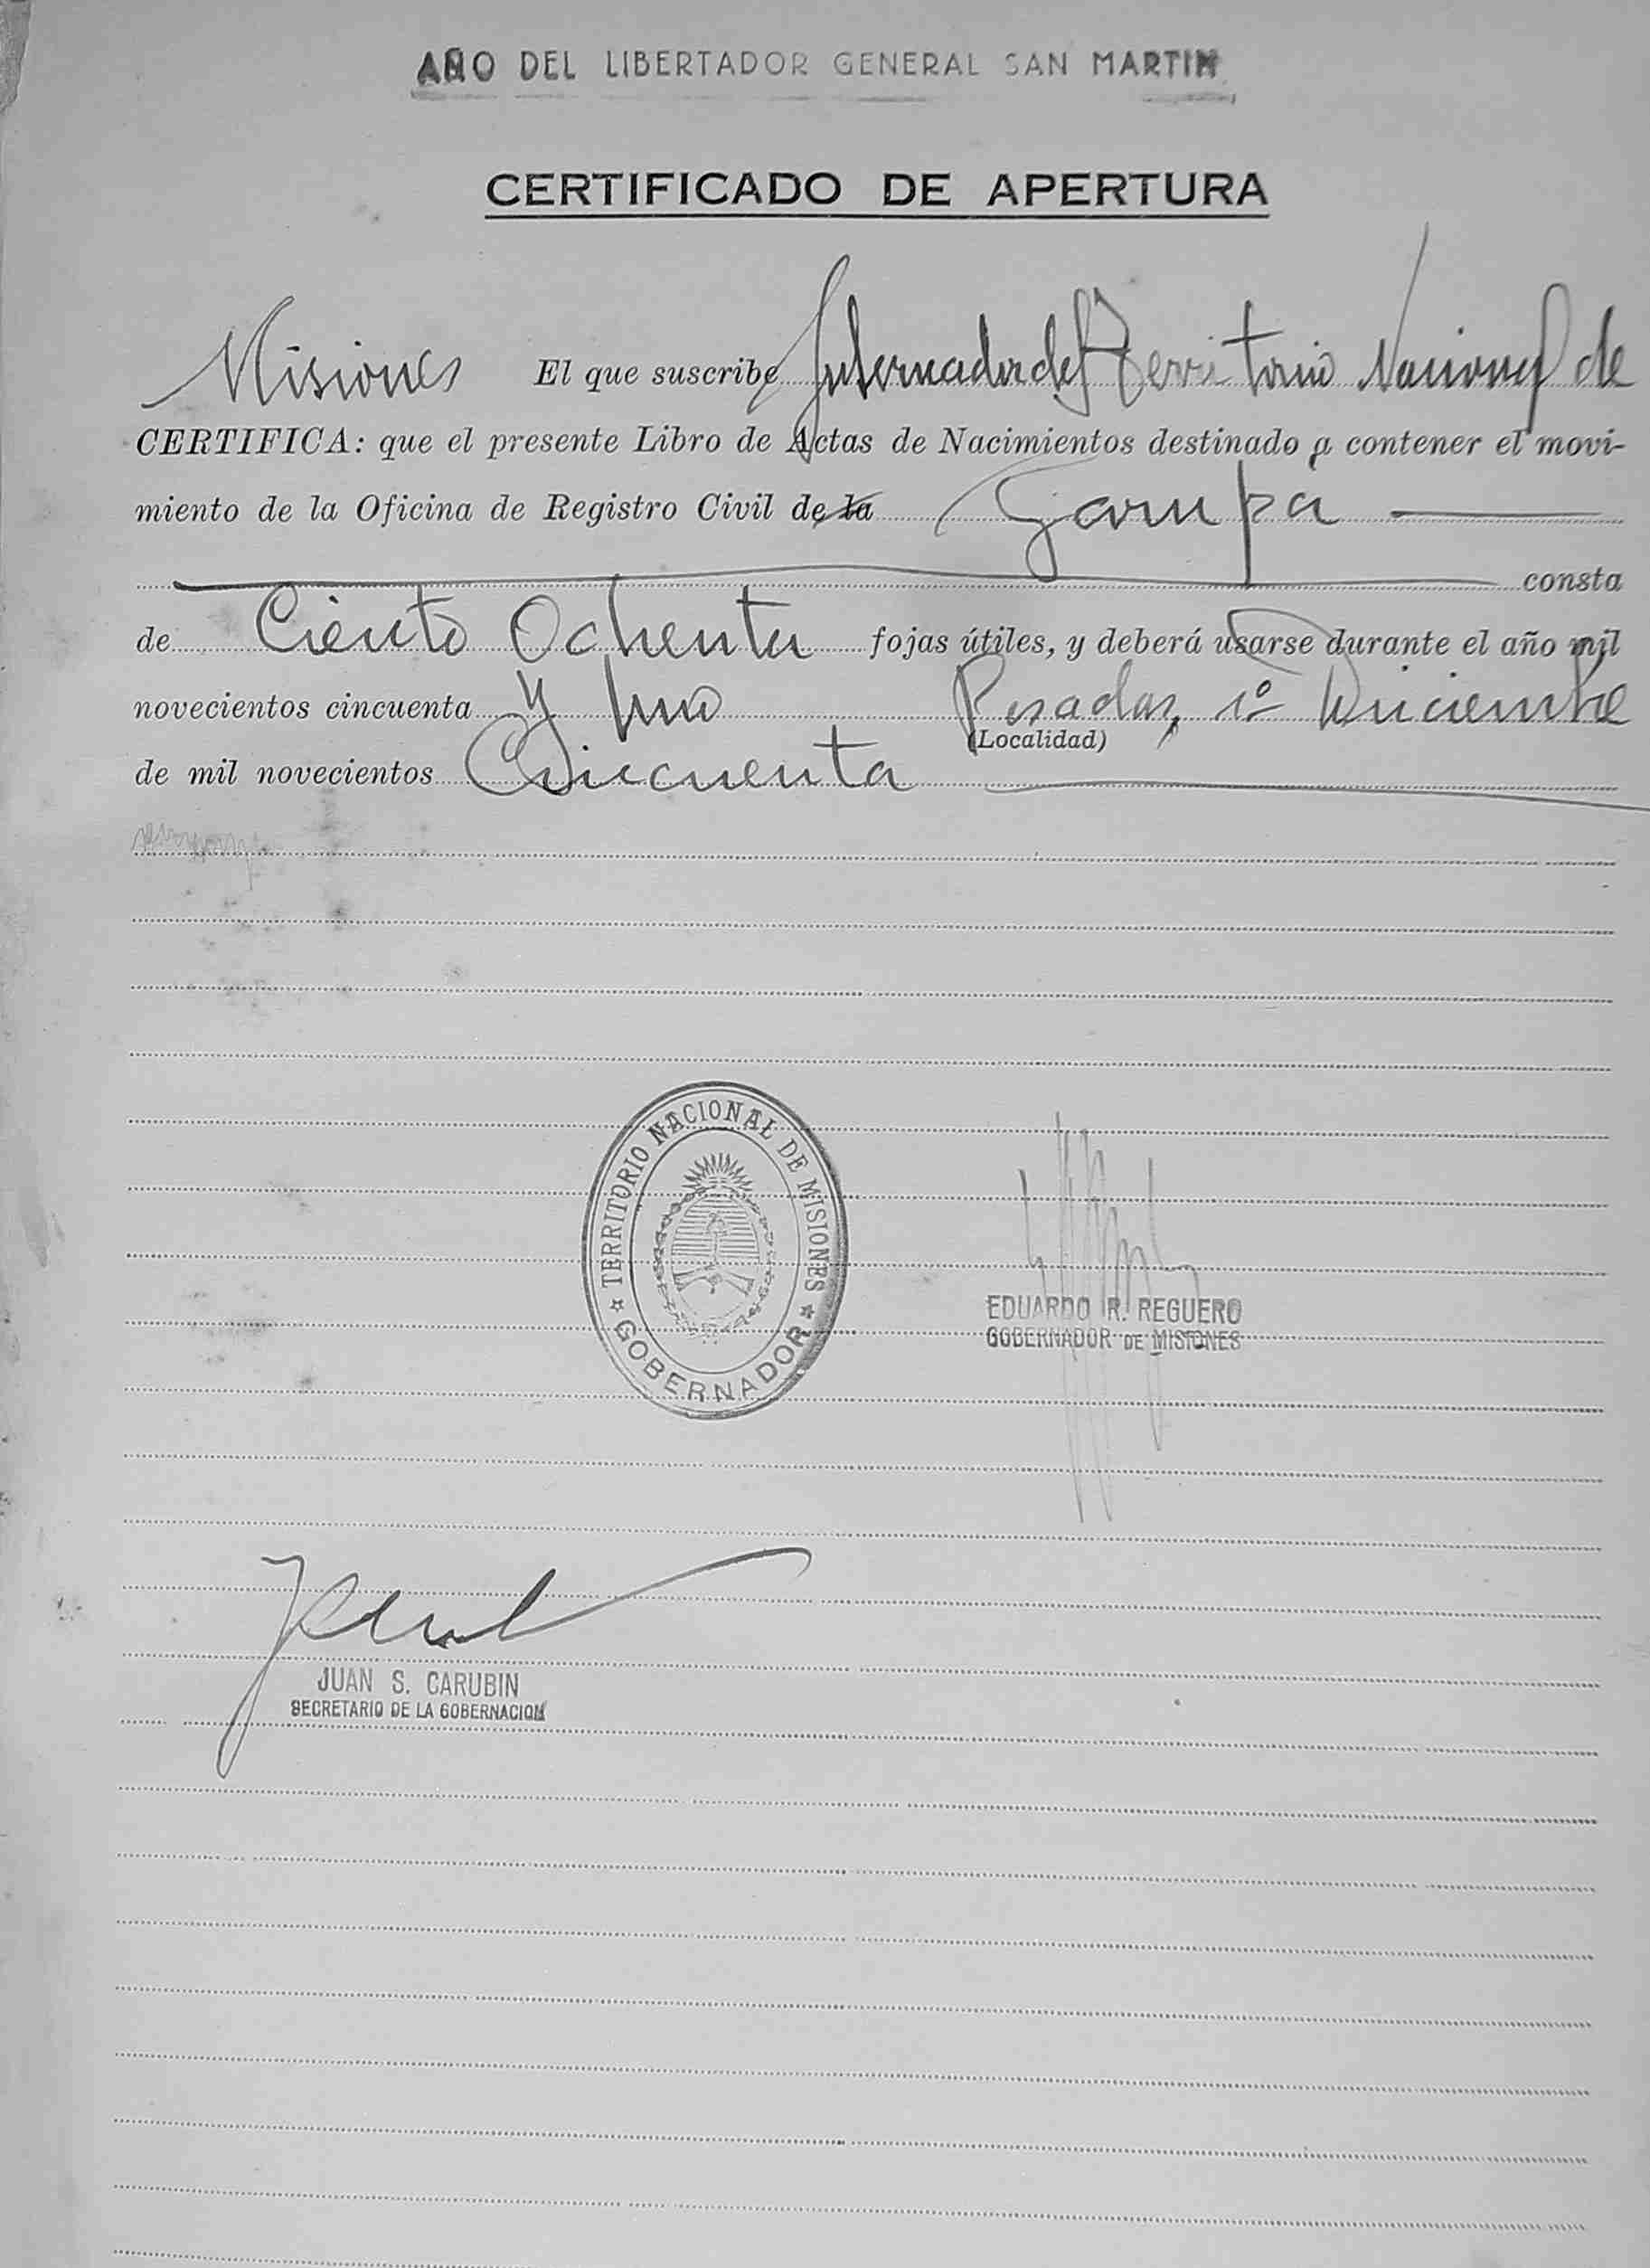 AÑO DEL LIBERTADOR GENERAL SAN MARTIN
CERTIFICADO DE APERTURA
Misiones El que suscribe Gobernador del Territorio Nacional de
CERTIFICA: que el presente Libro de Actas de Nacimientos destinado a contener el movi-
miento de la Oficina de Registro Civil de la Garupa
consta
de Ciento Ochenta fojas útiles, y deberá usarse durante el año mil
novecientos cincuenta y uno Posadas, 1º Diciembre
(Localidad)
de mil novecientos Cincuenta
TERRITORIO NACIONAL DE MISIONES
GOBERNADOR
EDUARDO R. REGUERO
GOBERNADOR DE MISIONES
JUAN S. CARUBIN
SECRETARIO DE LA GOBERNACION